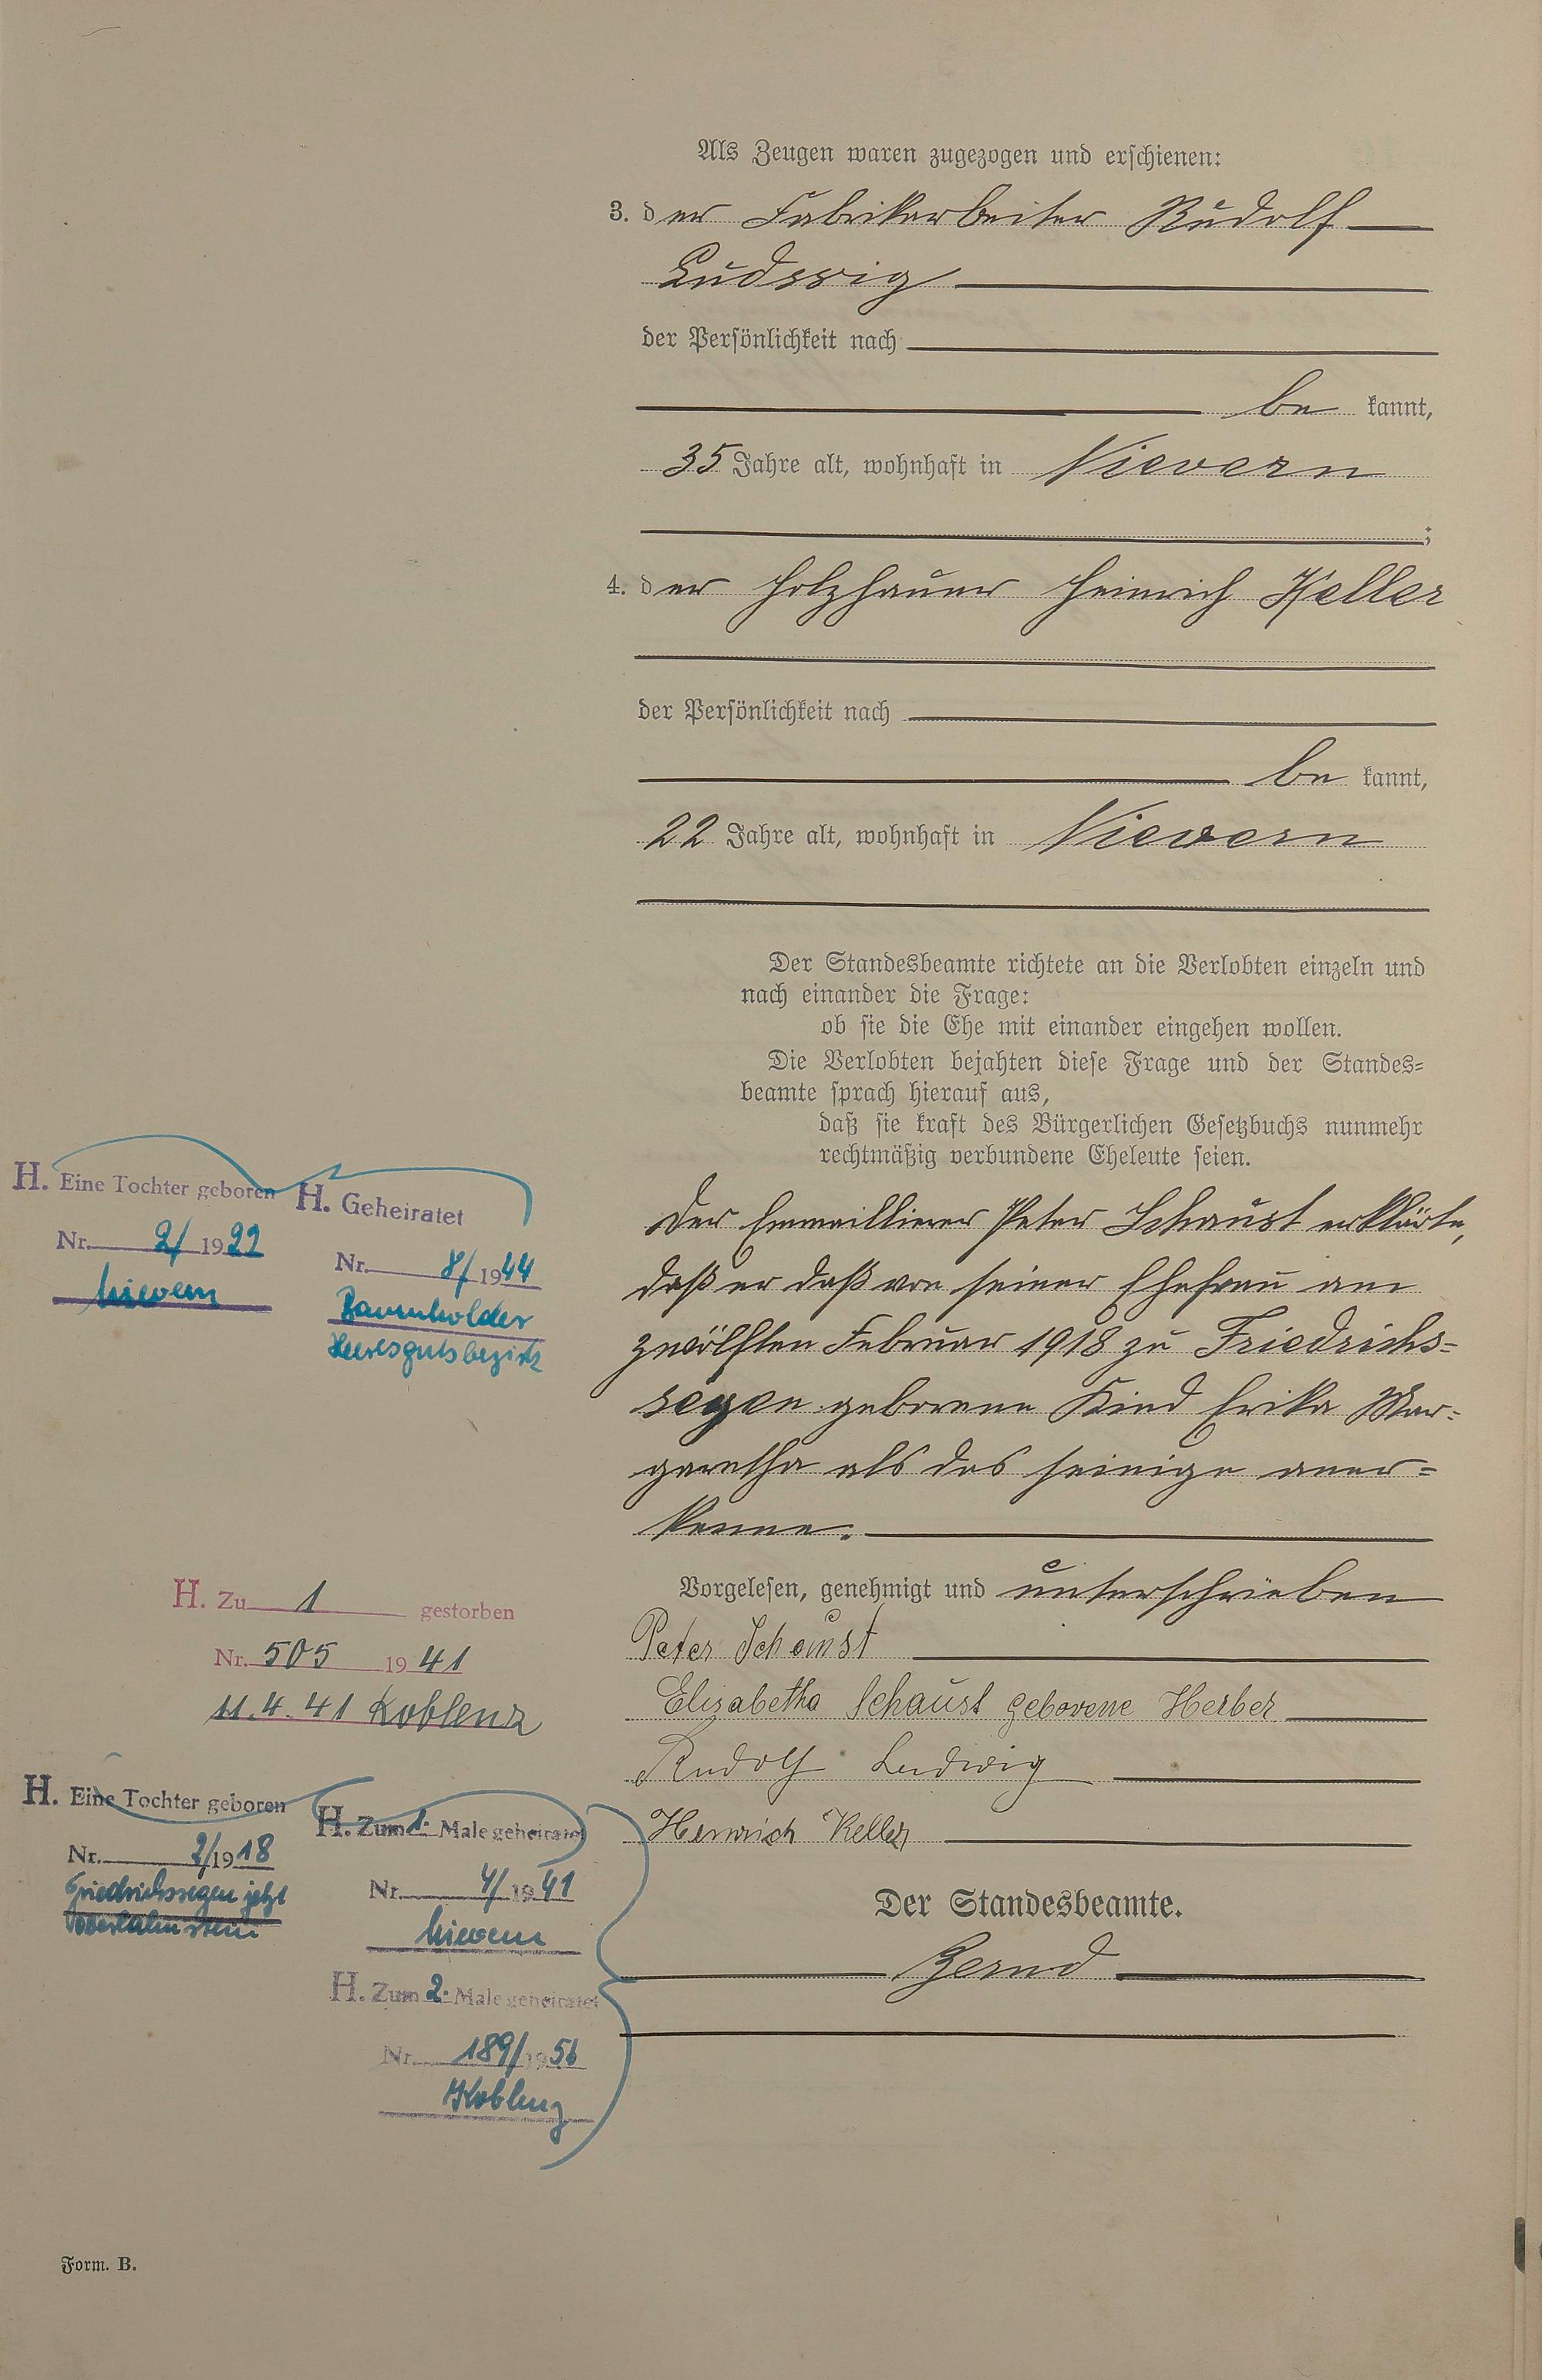 Als Zeugen waren zugezogen und erschienen:
3. der Fabrikarbeiter Rudolf
Ludwig
der Persönlichkeit nach
be kannt,
35 Jahre alt, wohnhaft in Nievern
;
4. der Holzhauer Heinrich Keller
der Persönlichkeit nach
be kannt,
22 Jahre alt, wohnhaft in Nievern
Der Standesbeamte richtete an die Verlobten einzeln und
nach einander die Frage:
ob sie die Ehe mit einander eingehen wollen.
Die Verlobten bejahten diese Frage und der Standes=
beamte sprach hierauf aus,
daß sie kraft des Bürgerlichen Gesetzbuchs nunmehr
rechtmäßig verbundene Eheleute seien.
Der Emaillierer Peter Schaust erklärte,
daß er daß von seiner Ehefrau am
zwölften Februar 1918 zu Friedrichs=
segen geborene Kind Erika Mar=
garetha als das seinige aner=
kenne.
Vorgelesen, genehmigt und unterschrieben
Peter Schaust
Elisabetha Schaust geborene Herber
Rudolf Ludwig
Heinrich Keller
Der Standesbeamte.
Bernd
H. Eine Tochter geboren
Nr. 2/1922
Nievern
H. Geheiratet
Nr. 8/1944
Baumholder
Heeresgutsbezirk
H. Zu 1 gestorben
Nr. 505 1941
11.4.41 Koblenz
H. Eine Tochter geboren
Nr. 2/1918
Friedrichssegen jetzt
Oberlahnstein
H. Zum 1. Male geheiratet
Nr. 4/1941
Nievern
H. Zum 2. Male geheiratet
Nr. 189/1956
Koblenz
Form. B.